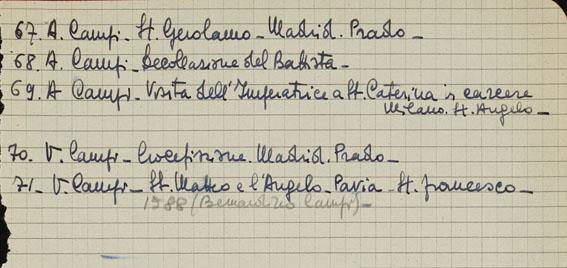 67. A. Campi - St. Gerolamo - Madrid. Prado -
68. A. Campi - Decollazione del Battista -
69. A Campi - Visita dell'Imperatrice a St. Caterina in carcere
Milano. St. Angelo -
70. V. Campi - Crocefissione. Madrid. Prado -
71 - V. Campi - St. Matteo e l'Angelo - Pavia - St. Francesco -
1588 (Bernardino Campi) -